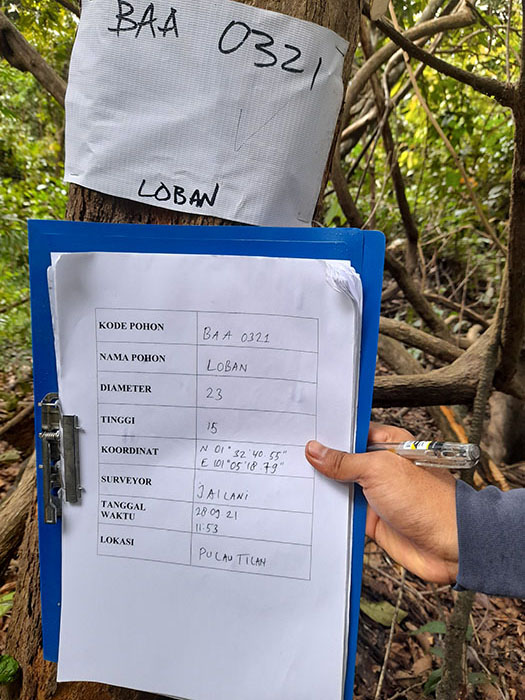 BAA 0321
LOBAN
KODE POHON BAA 0321
NAMA POHON LOBAN
DIAMETER 23
TINGGI 15
KOORDINAT N 01° 32' 40.55"
E 101° 05' 18.79"
SURVEYOR JAILANI
TANGGAL 28 09 21
WAKTU 11.53
LOKASI PULAU TILAN